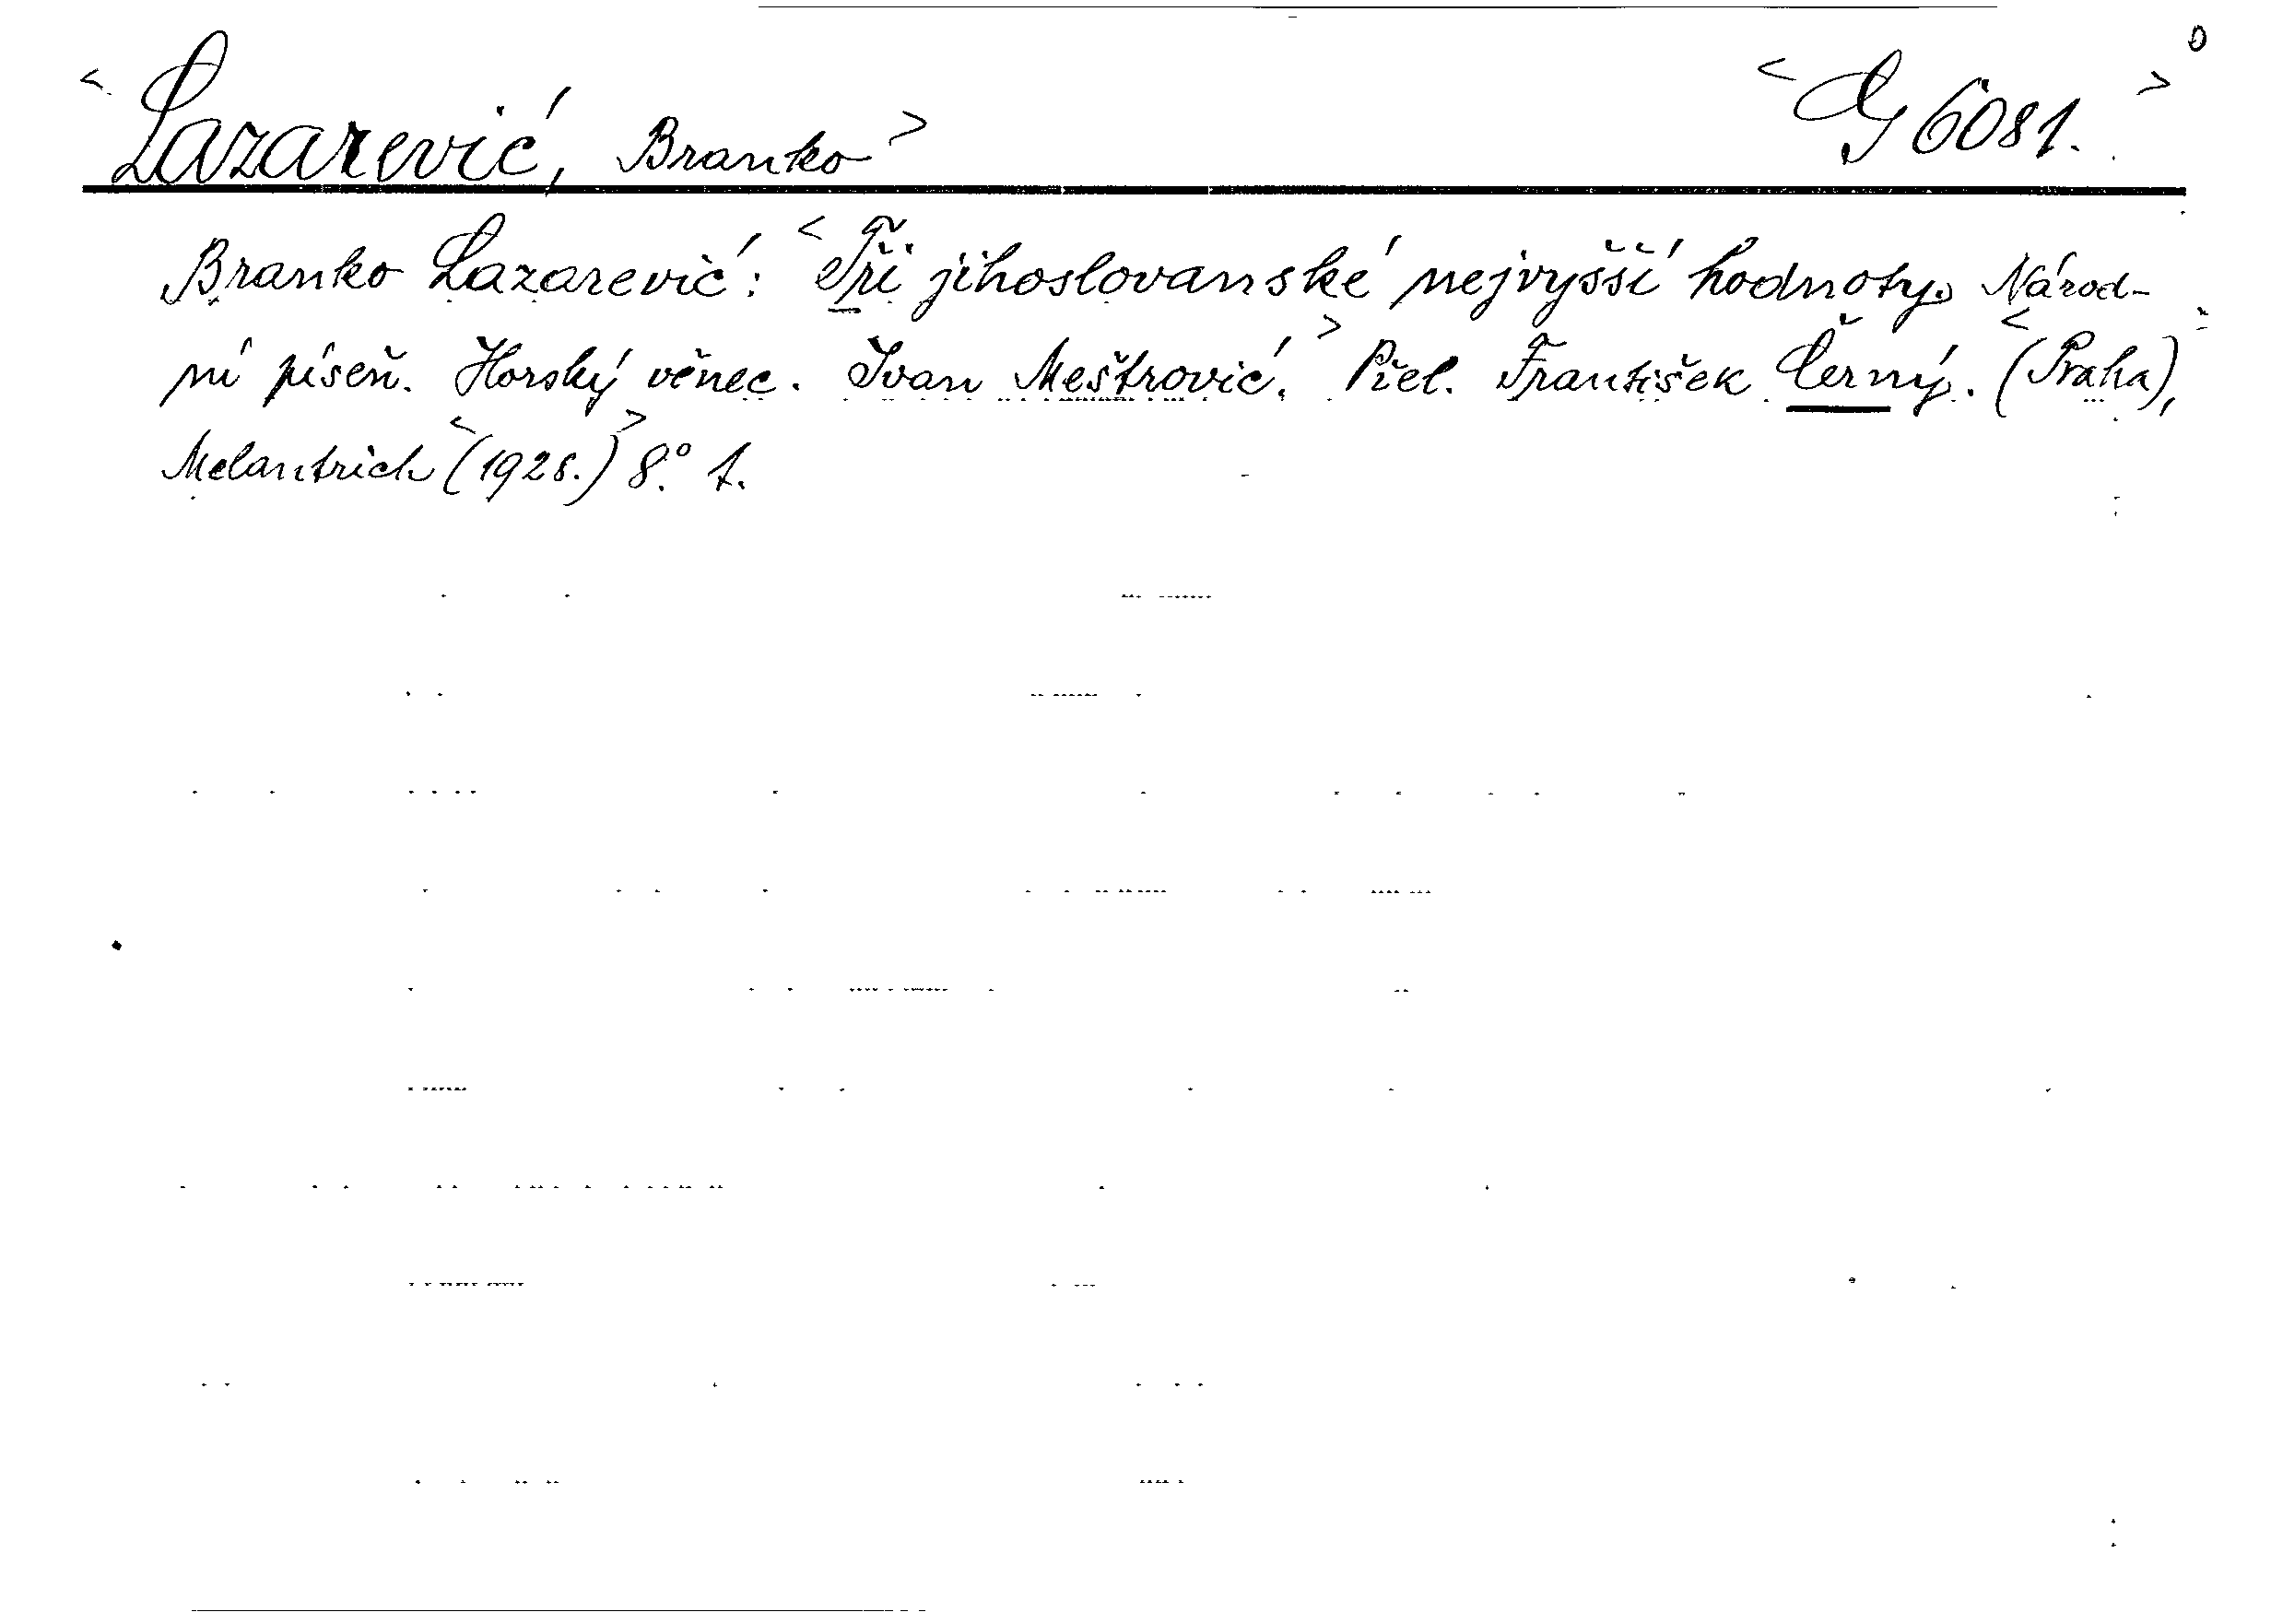 <Lazarević, Branko> <G 6081.>
Branko Lazarević: <Tři jihoslovanské nejvyšší hodnoty. Národ-
ní píseň. Horský věnec. Ivan Meštrović.> Přel. František Černý. <(Praha),
Melantrich <(1928.)> 8.° 1.